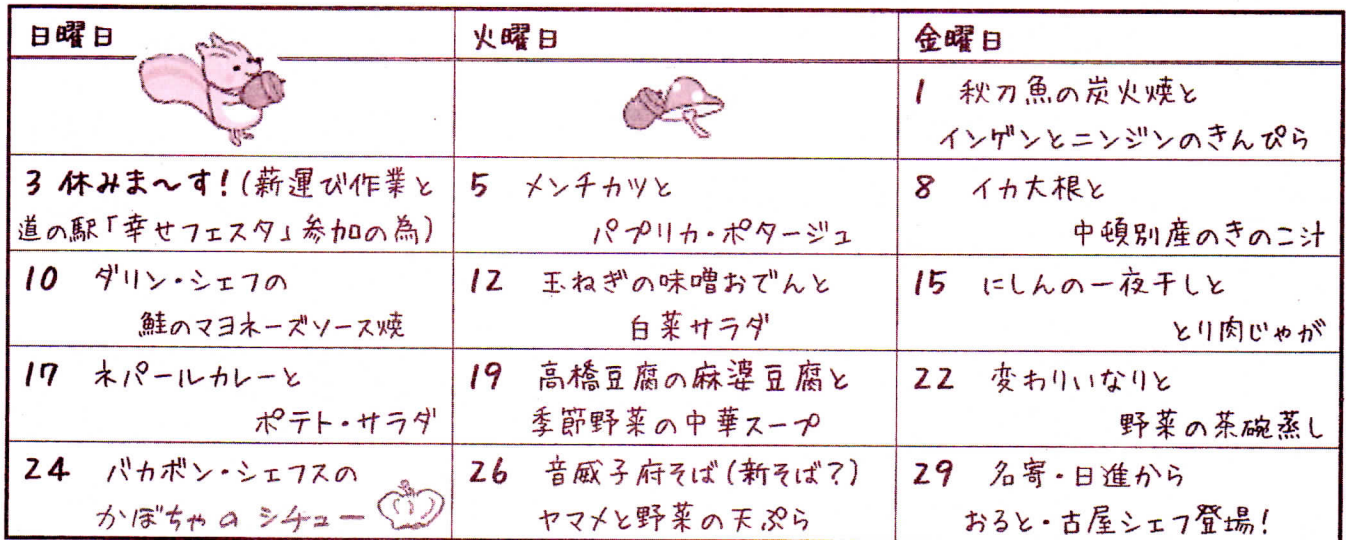 日曜日 火曜日 金曜日
1 秋刀魚の炭火焼と
インゲンとニンジンのきんぴら
3 休みま~す!(薪運び作業と
道の駅「幸せフェスタ」参加の為)
5 メンチカツと
パプリカ・ポタージュ
8 イカ大根と
中頓別産のきのこ汁
10 ダリン・シェフの
鮭のマヨネーズソース焼
12 玉ねぎの味噌おでんと
白菜サラダ
15 にしんの一夜干しと
とり肉じゃが
17 ネパールカレーと
ポテト・サラダ
19 高橋豆腐の麻婆豆腐と
季節野菜の中華スープ
22 変わりいなりと
野菜の茶碗蒸し
24 バカボン・シェフスの
かぼちゃのシチュー
26 音威子府そば(新そば?)
ヤマメと野菜の天ぷら
29 名寄・日進から
おると・古屋シェフ登場!